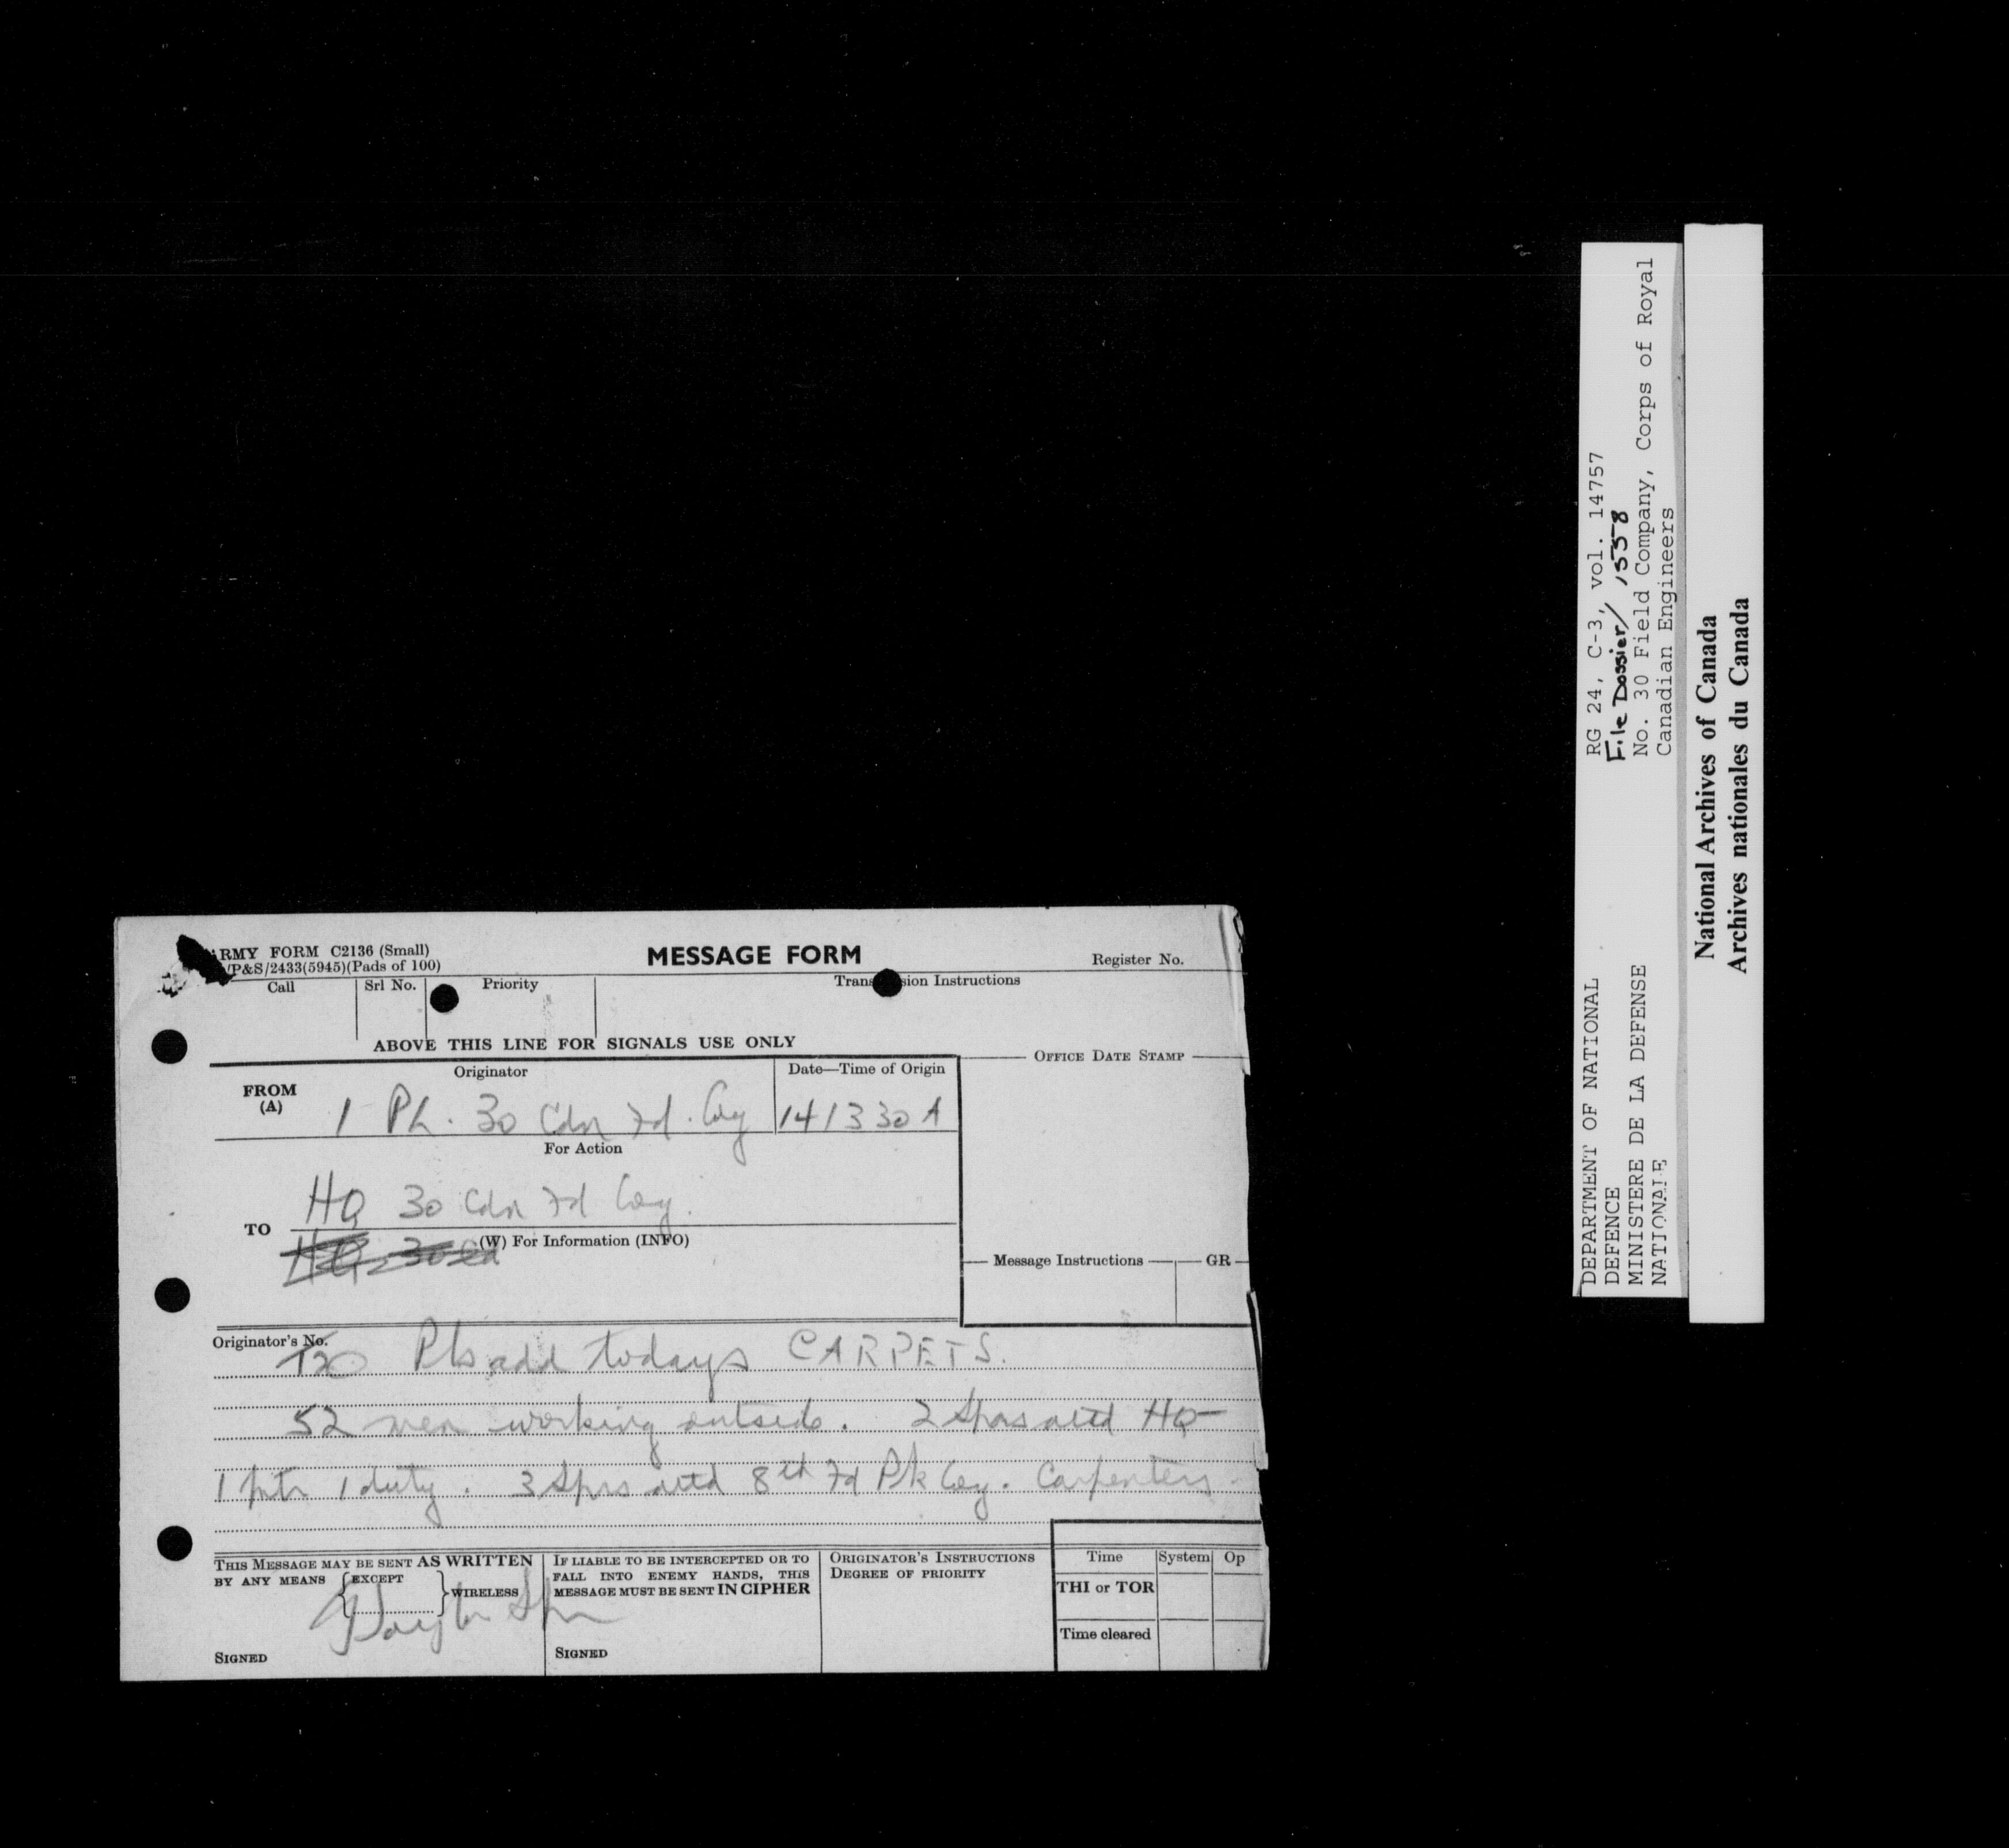 ARMY FORM C2136 (Small)
/P&S/2433(5945)(Pads of 100)
MESSAGE FORM
Register No.
Call
Srl No.
Priority
Trans sion Instructions
ABOVE THIS LINE FOR SIGNALS USE ONLY
OFFICE DATE STAMP
Originator
Date—Time of Origin
FROM
(A)
1 Pl. 30 Cdn Fd. Coy
141330A
For Action
HQ 30 Cdn Fd Coy.
TO
(W) For Information (INFO)
HQ 30 Cd
Message Instructions
GR
Originator's No.
Pls add todays CARPETS.
52 men working outside. 2 Sprs attd HQ—
1 ptr 1 duty. 3 Sprs attd 8th Fd Pk Coy. Carpenters
THIS MESSAGE MAY BE SENT AS WRITTEN
BY ANY MEANS
EXCEPT
WIRELESS
SIGNED
IF LIABLE TO BE INTERCEPTED OR TO
FALL INTO ENEMY HANDS, THIS
MESSAGE MUST BE SENT IN CIPHER
SIGNED
ORIGINATOR'S INSTRUCTIONS
DEGREE OF PRIORITY
Time System Op
THI or TOR
Time cleared
DEPARTMENT OF NATIONAL
DEFENCE
MINISTERE DE LA DEFENSE
NATIONALE
RG 24, C-3, vol. 14757
File Dossier/ 1558
No. 30 Field Company, Corps of Royal
Canadian Engineers
National Archives of Canada
Archives nationales du Canada